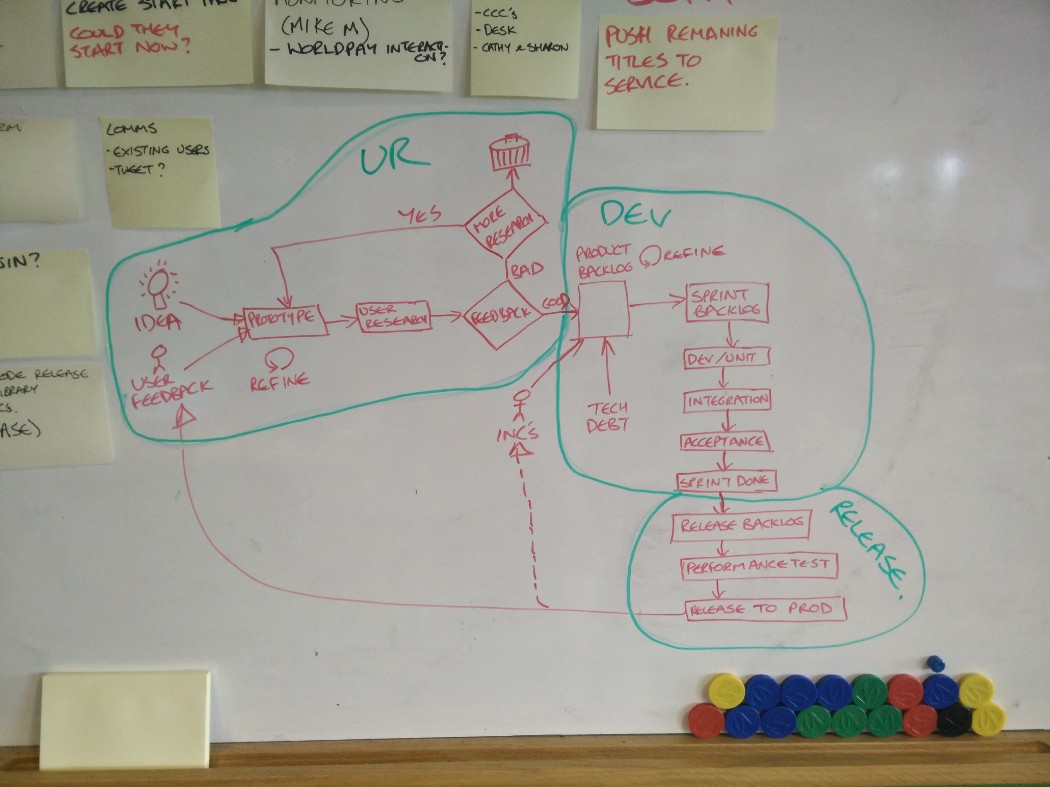 CREATE START PAGE
COULD THEY
START NOW?
MONITORING
(MIKE M)
- WORLDPAY INTERACTI-
ON?
-CCC'S
-DESK
- CATHY & SHARON
PUSH REMANING
TITLES TO
SERVICE.
COMMS
-EXISTING USERS
-TWEET?
RM
SIN?
ODE RELEASE
IBRARY
CS.
ASE)
UR
YES
MORE
RESEARCH
BAD
IDEA
PROTOTYPE
USER
RESEARCH
FEEDBACK
GOOD
REFINE
USER
FEEDBACK
INC'S
DEV
PRODUCT
BACKLOG
REFINE
SPRINT
BACKLOG
DEV/UNIT
INTEGRATION
ACCEPTANCE
SPRINT DONE
TECH
DEBT
RELEASE.
RELEASE BACKLOG
PERFORMANCE TEST
RELEASE TO PROD